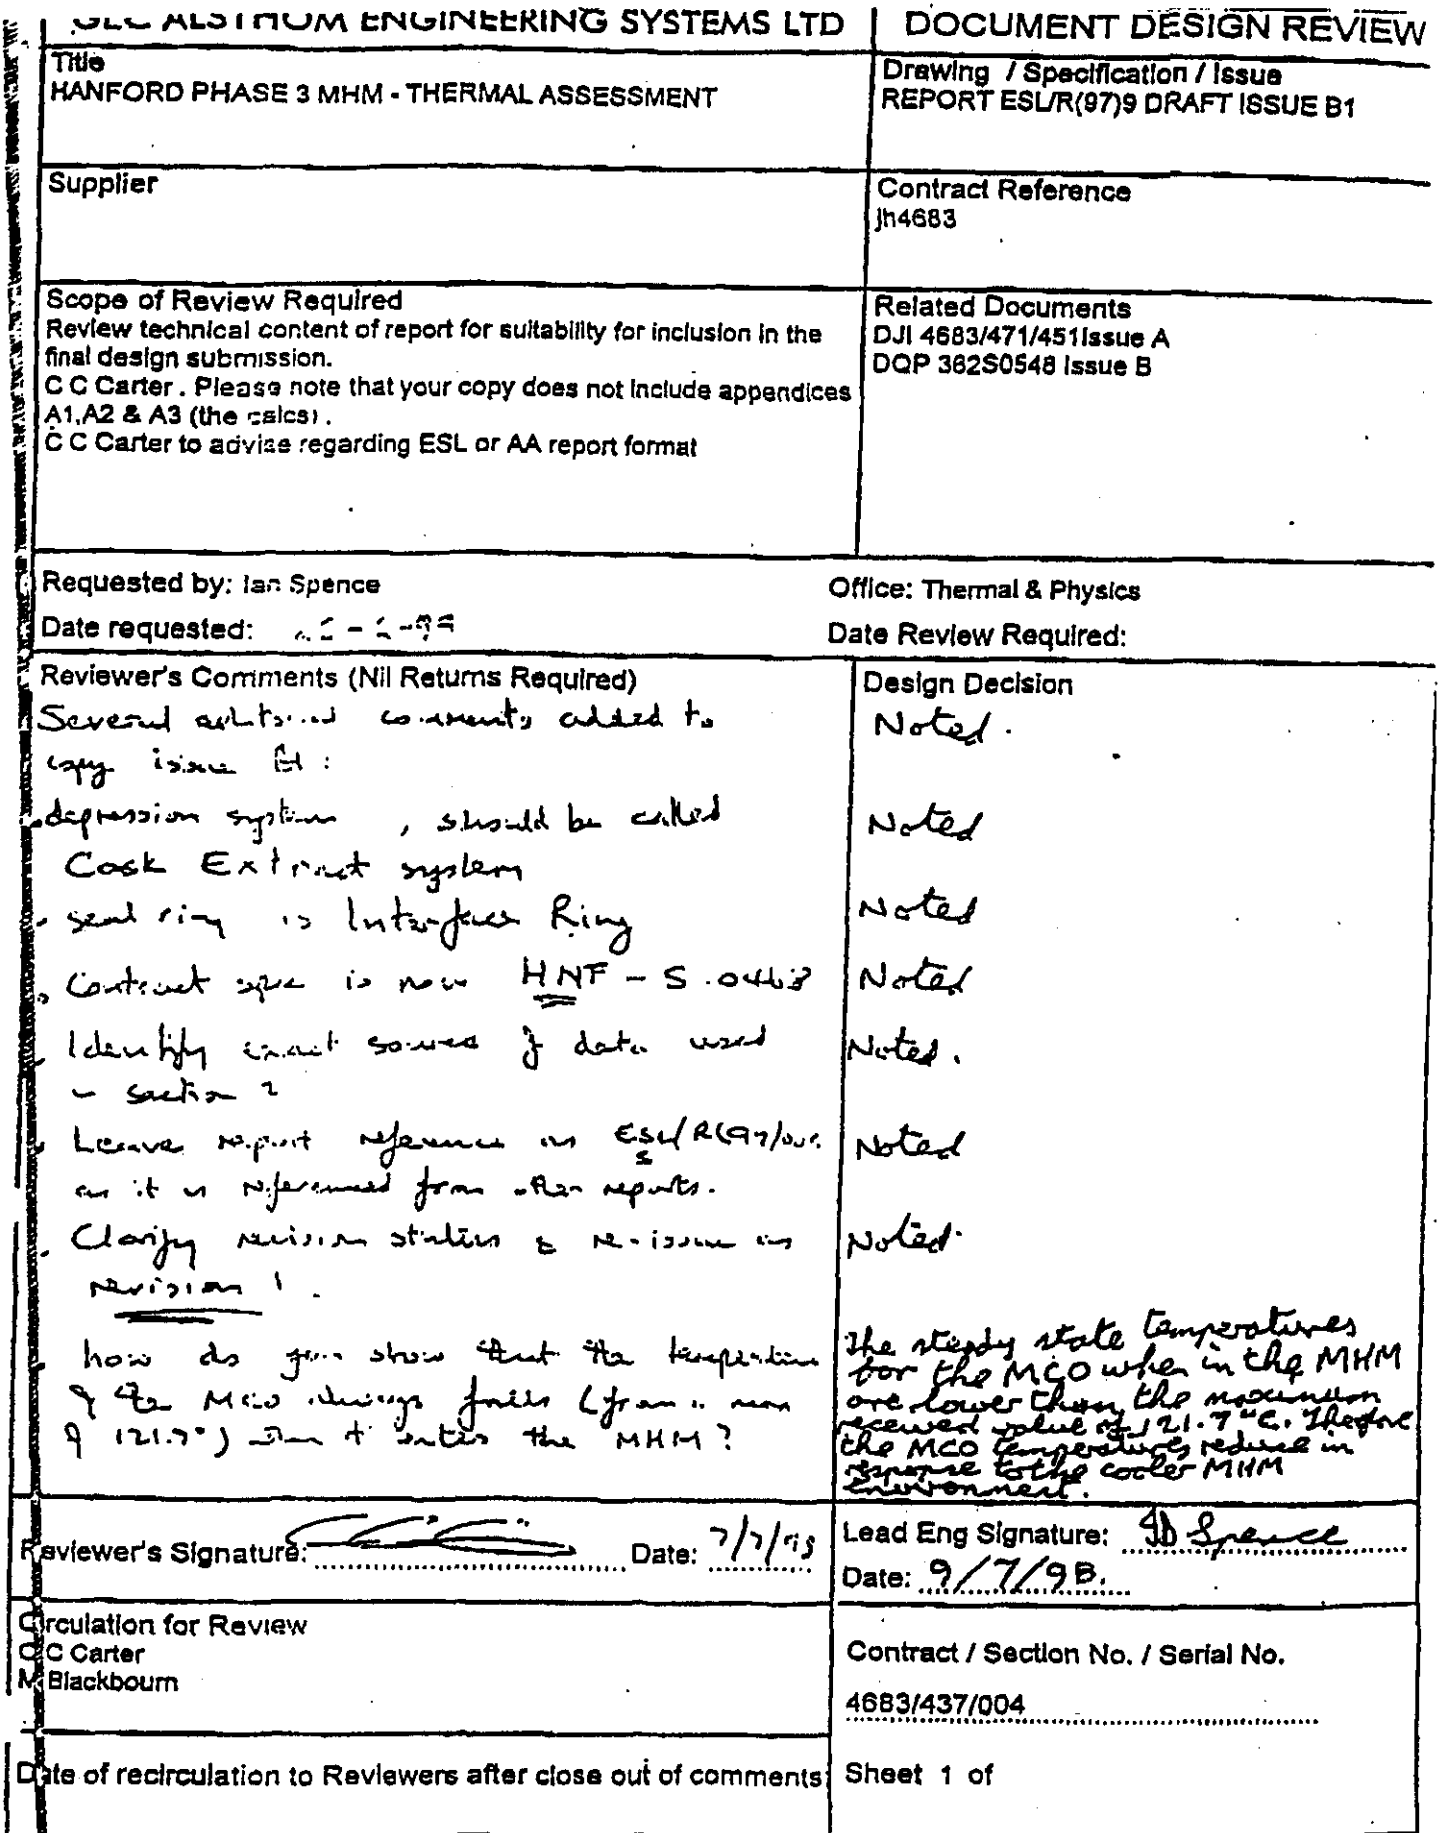 GEC ALSTHOM ENGINEERING SYSTEMS LTD
DOCUMENT DESIGN REVIEW
Title
HANFORD PHASE 3 MHM - THERMAL ASSESSMENT
Drawing / Specification / Issue
REPORT ESL/R(97)9 DRAFT ISSUE B1
Supplier
Contract Reference
jh4683
Scope of Review Required
Review technical content of report for suitability for inclusion in the
final design submission.
C C Carter . Please note that your copy does not include appendices
A1,A2 & A3 (the calcs) .
C C Carter to advise regarding ESL or AA report format
Related Documents
DJI 4683/471/451Issue A
DQP 362S0548 Issue B
Requested by: Ian Spence
Office: Thermal & Physics
Date requested:
Date Review Required:
Reviewer's Comments (Nil Returns Required)
Several comments added to
copy issue
depression system , should be called
Cask Extract system
seal ring is Interface Ring
Contract spec is now HNF - S
Identify exact source of data used
section 2
Leave report reference as ESL/R(97)
as it is referenced from other reports.
Clarify revision status & re-issue as
revision 1.
how do you show that the temperature
of the MCO always falls (from a max
of 121.7°) when it enters the MHM?
Design Decision
Noted.
Noted
Noted
Noted
Noted.
Noted
Noted.
The steady state temperatures
for the MCO when in the MHM
are lower than the maximum
received value of 121.7°C. Therefore
the MCO temperatures reduce in
response to the cooler MHM
environment.
Reviewer's Signature:
Date: 7/7/98
Lead Eng Signature: ID Spence
Date: 9/7/98.
Circulation for Review
C C Carter
M Blackbourn
Contract / Section No. / Serial No.
4683/437/004
Date of recirculation to Reviewers after close out of comments
Sheet 1 of